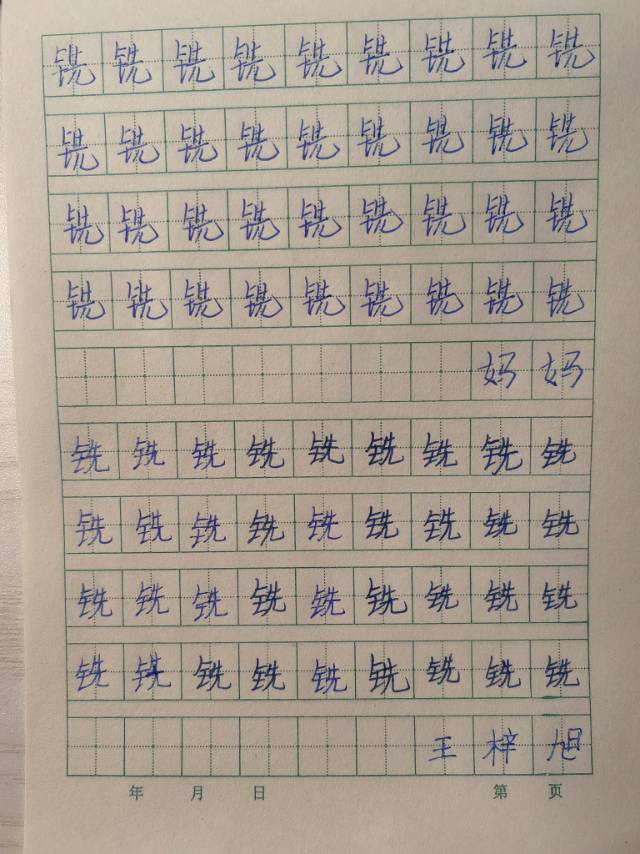 铣铣铣铣铣铣铣铣铣
铣铣铣铣铣铣铣铣铣
铣铣铣铣铣铣铣铣铣
铣铣铣铣铣铣铣铣铣
妈妈
铣铣铣铣铣铣铣铣铣
铣铣铣铣铣铣铣铣铣
铣铣铣铣铣铣铣铣铣
铣铣铣铣铣铣铣铣铣
王梓旭
年 月 日 第 页